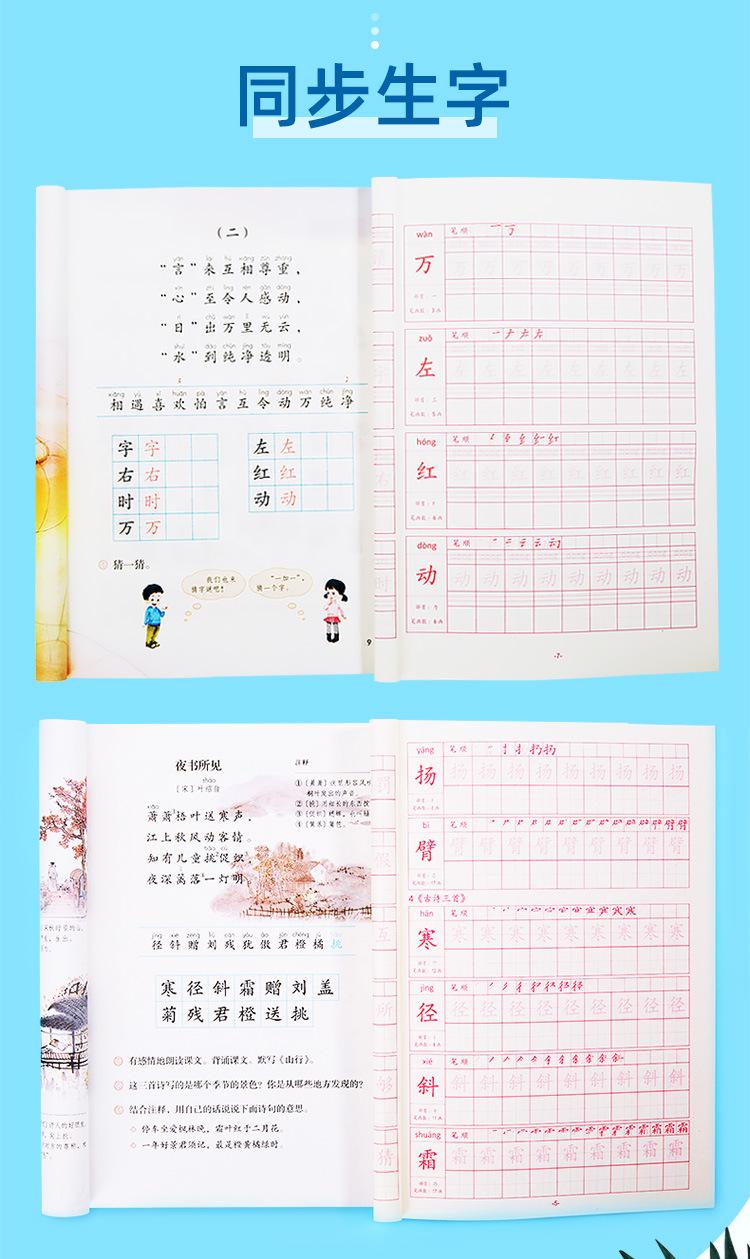 同步生字
（二）
yán lái hù xiāng zūn zhòng
“言”来互相尊重，
xīn zhì lìng rén gǎn dòng
“心”至令人感动，
rì chū wàn lǐ wú yún
“日”出万里无云，
shuǐ dào chún jìng tòu míng
“水”到纯净透明。
xiāng yù xǐ huān pà yán hù lìng dòng wàn chún jìng
相遇喜欢怕言互令动万纯净
字 字
左 左
右 右
红 红
时 时
动 动
万 万
猜一猜。
我们也来
猜字谜吧！
“一加一”，
猜一个字。
9
wàn 笔顺
万
zuǒ 笔顺
左 左左左左左左左左左
hóng 笔顺
红 红红红红红红红红红
dòng 笔顺
动 动动动动动动动动动
-7-
夜书所见
［宋］叶绍翁
萧萧梧叶送寒声，
江上秋风动客情。
知有儿童挑促织，
夜深篱落一灯明。
注释
径斜赠刘残犹傲君橙橘挑
寒径斜霜赠刘盖
菊残君橙送挑
有感情地朗读课文。背诵课文。默写《山行》。
这三首诗写的是哪个季节的景色？你是从哪些地方发现的？
结合注释，用自己的话说说下面诗句的意思。
◇ 停车坐爱枫林晚，霜叶红于二月花。
◇ 一年好景君须记，最是橙黄橘绿时。
yáng 笔顺
扬 扬扬扬扬扬扬扬扬扬
bì 笔顺
臂 臂臂臂臂臂臂臂臂臂
4《古诗三首》
hán 笔顺
寒 寒寒寒寒寒寒寒寒寒
jìng 笔顺
径 径径径径径径径径径
xié 笔顺
斜 斜斜斜斜斜斜斜斜斜
shuāng 笔顺
霜 霜霜霜霜霜霜霜霜霜